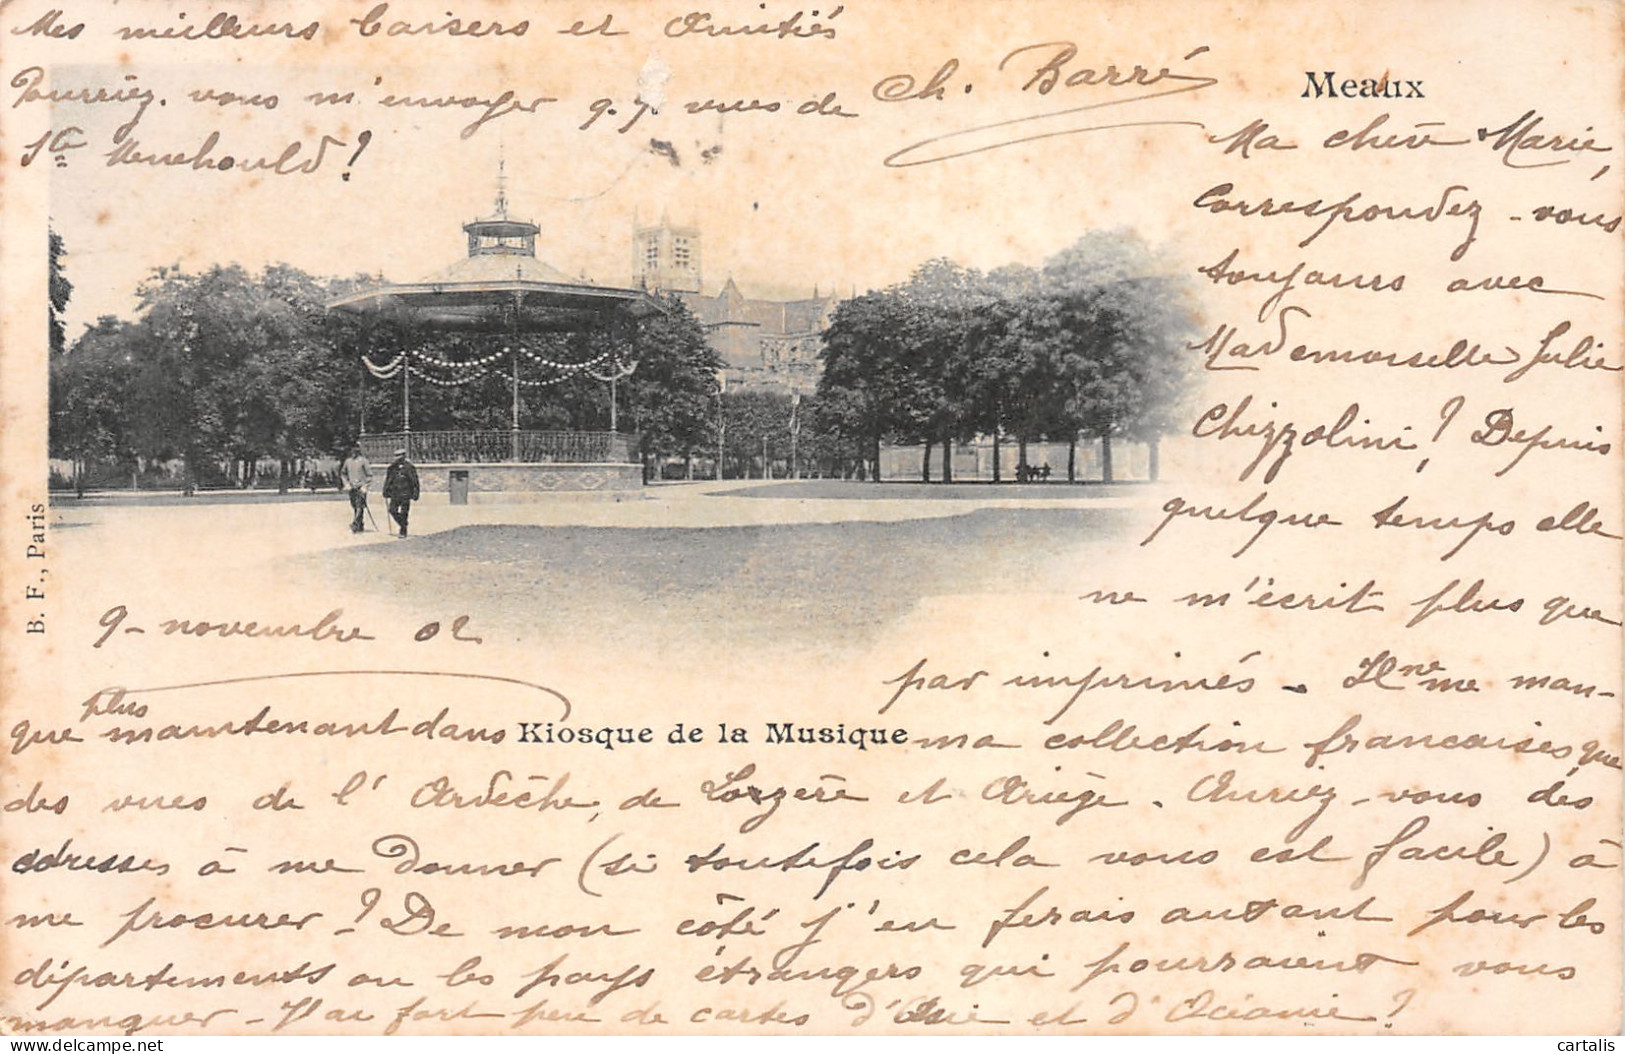 Mes meilleurs baisers et Amitiés
Pourriez-vous m'envoyer q.q. vues de
Ste Menehould ?
Ch. Barré
Meaux
Ma chère Marie,
Correspondez-vous
toujours avec
Mademoiselle Julie
Chizzolini ? Depuis
quelque temps elle
ne m'écrit plus que
par imprimés. Il ne me man-
B. F., Paris
9 - novembre 02
Kiosque de la Musique
que plus maintenant dans ma collection francaises que
des vues de l'Ardèche, de Lozère et Ariège. Auriez-vous des
adresses à me donner (si toutefois cela vous est facile) à
me procurer ? De mon côté j'en ferais autant pour les
départements ou les pays étrangers qui pourraient vous
manquer - J'ai fort peu de cartes d'Asie et d'Océanie !
cartalis